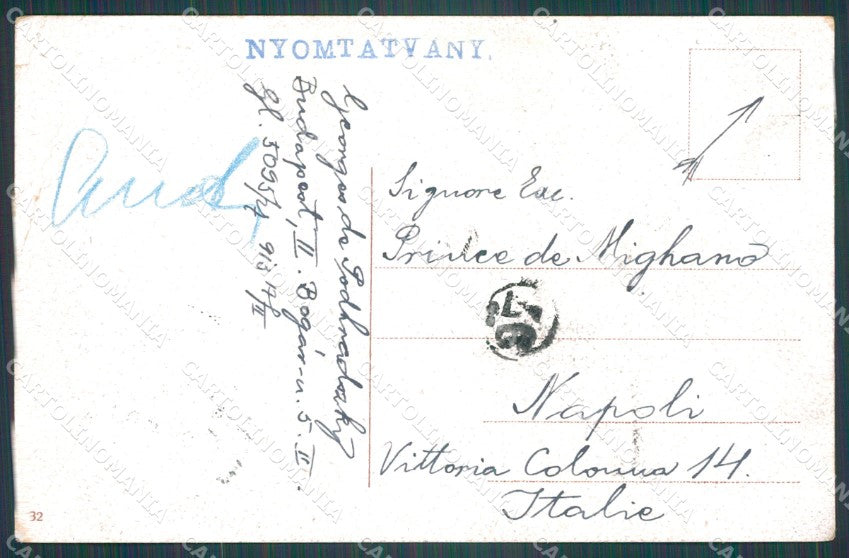 NYOMTATVÁNY.
Georges de Podhradszky
Budapest, II. Bogár-u. 5. II.
Gl. 5095/27 913 17/II
Signore Exc.
Prince de Mighano
Napoli
Vittoria Colonna 14.
Italie
32
CARTOLINOMANIA